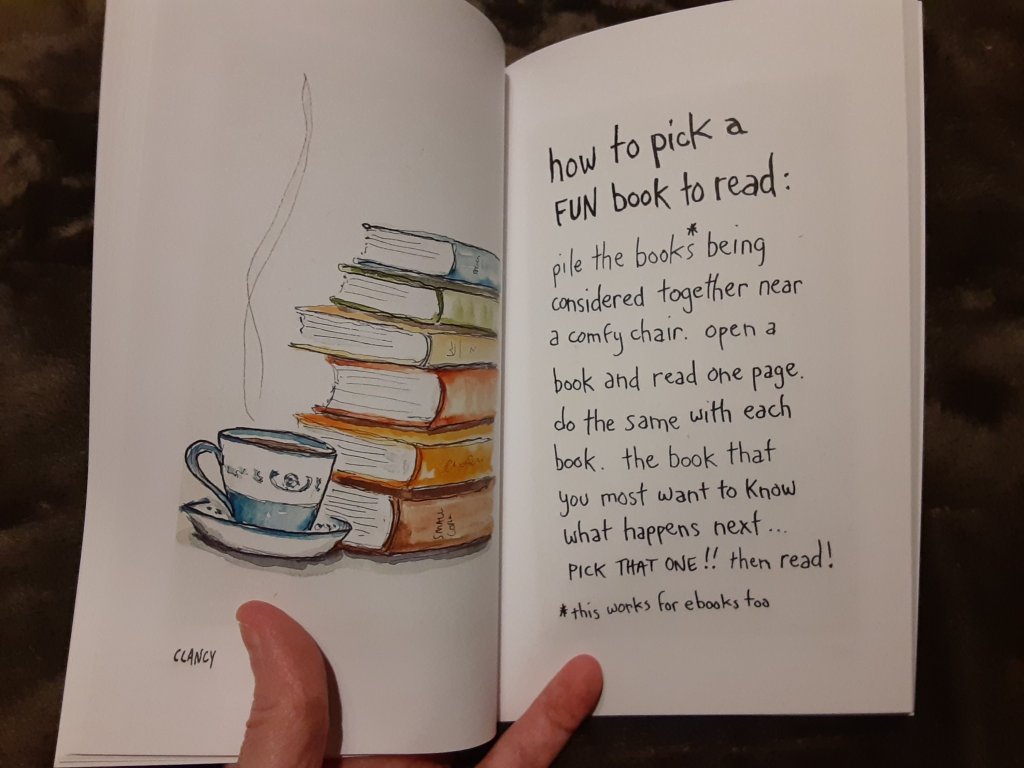 CLANCY
SMALL
how to pick a
FUN book to read:
pile the books* being
considered together near
a comfy chair. open a
book and read one page.
do the same with each
book. the book that
you most want to know
what happens next...
PICK THAT ONE!! then read!
*this works for ebooks too